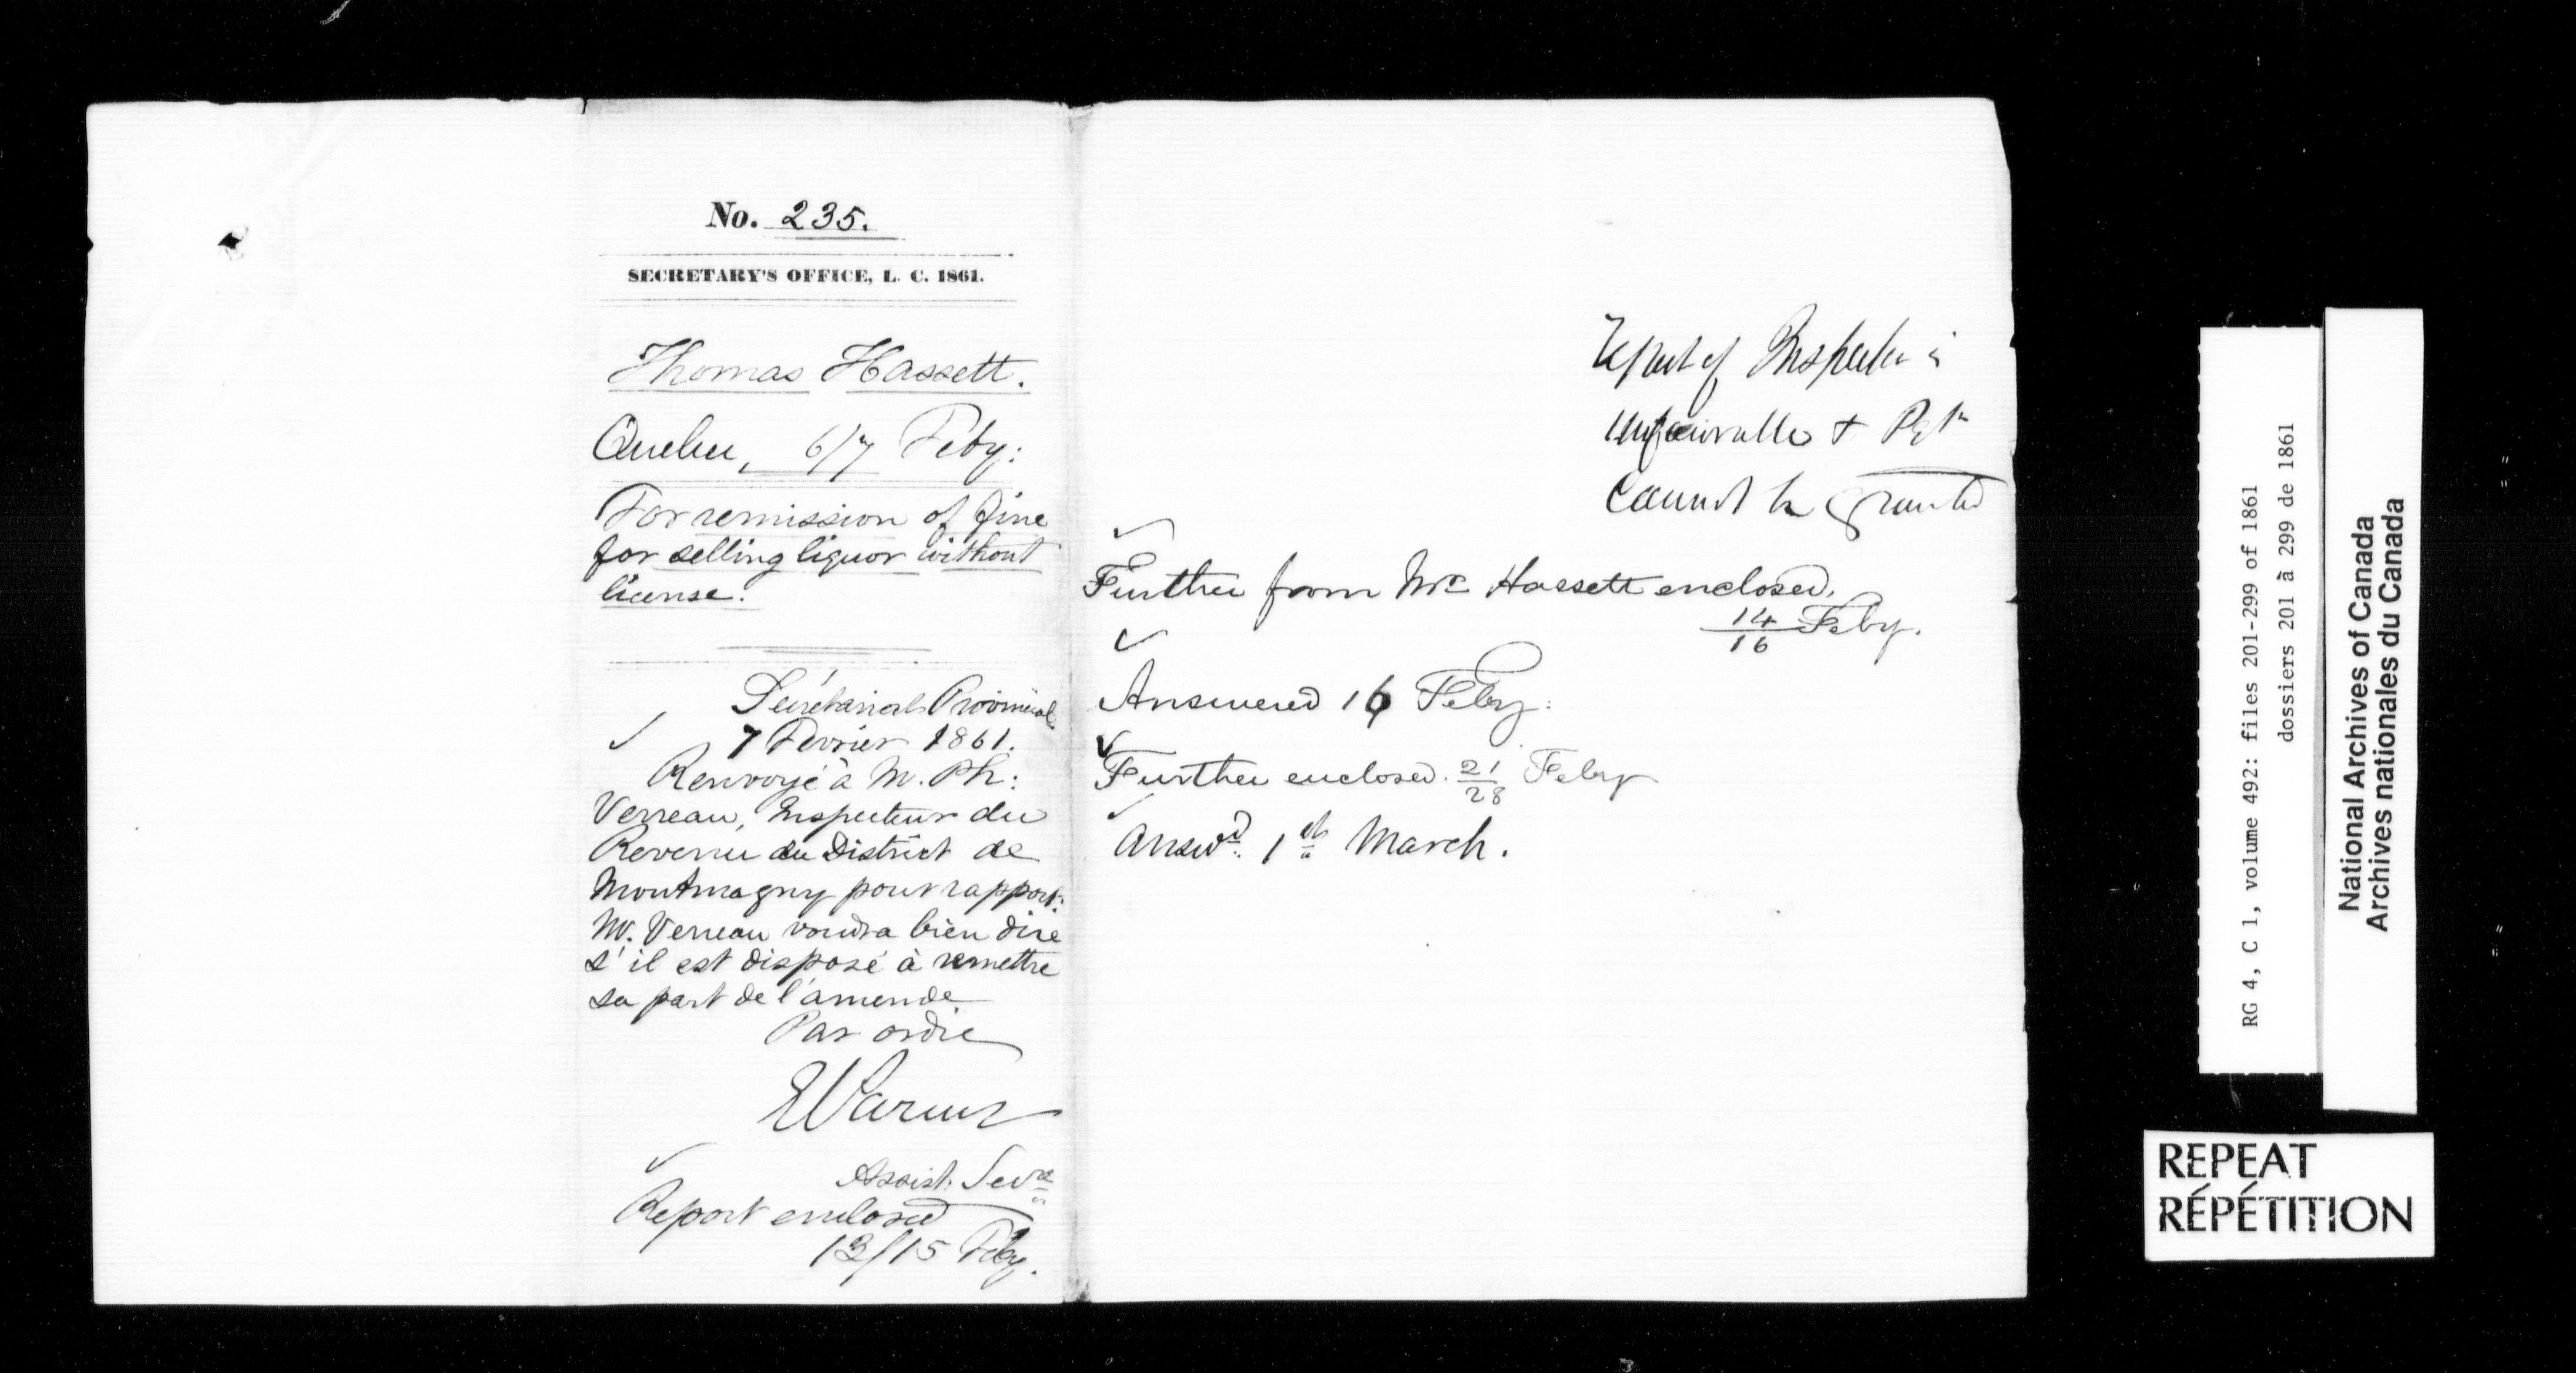 No. 235.
SECRETARY'S OFFICE, L. C. 1861.
Thomas Hassett.
Quebec, 6/7 Feby:
For remission of fine
for selling liquor without
license.
Secrétariat Provincial
7 Fevrier 1861.
Renvoyé à M. Ph:
Verreau, Inspecteur du
Revenu du District de
Montmagny pour rapport.
M. Verreau voudra bien dire
s'il est disposé à remettre
sa part de l'amende.
Par ordre
Assist. Secre
Report enclosed
13/15 Feby.
Report of Inspector is
unfavorable + Petn
cannot be granted
Further from Mr Hassett enclosed.
14/16 Feby.
Answered 16 Feby:
Further enclosed. 21/28 Feby
Answd. 1st March.
RG 4, C 1, volume 492: files 201-299 of 1861
dossiers 201 à 299 de 1861
National Archives of Canada
Archives nationales du Canada
REPEAT
RÉPÉTITION